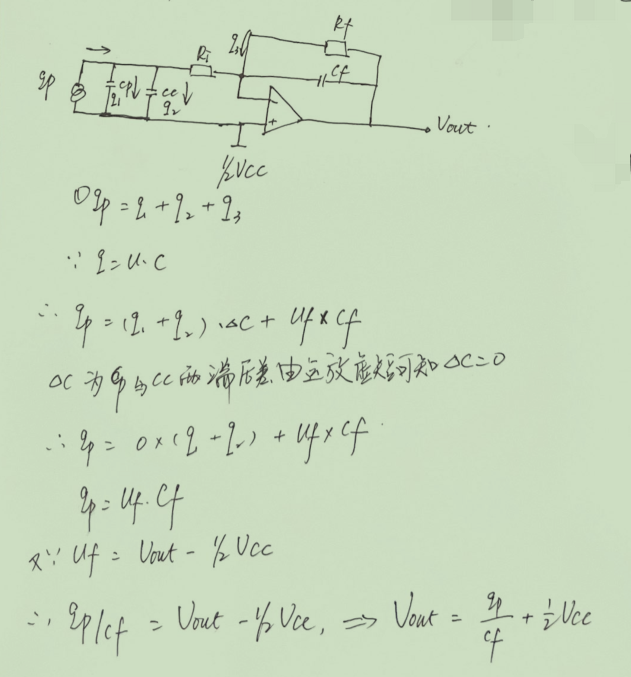 Rf
q3↓
Ri
Cf
qp
cp↓
q1
cc↓
q2
-
+
Vout.
½Vcc
①qp = q1 + q2 + q3
∵ q = u·c
∴ qp = (q1 + q2)·△C + Uf×Cf
△C为Cp与CC两端压差,由运放虚短可知△C=0
∴ qp = 0×(q + q2) + Uf×Cf
qp = Uf·Cf
又∵ Uf = Vout - ½Vcc
∴ qp/cf = Vout - ½Vcc, ⇒ Vout = qp/cf + ½Vcc